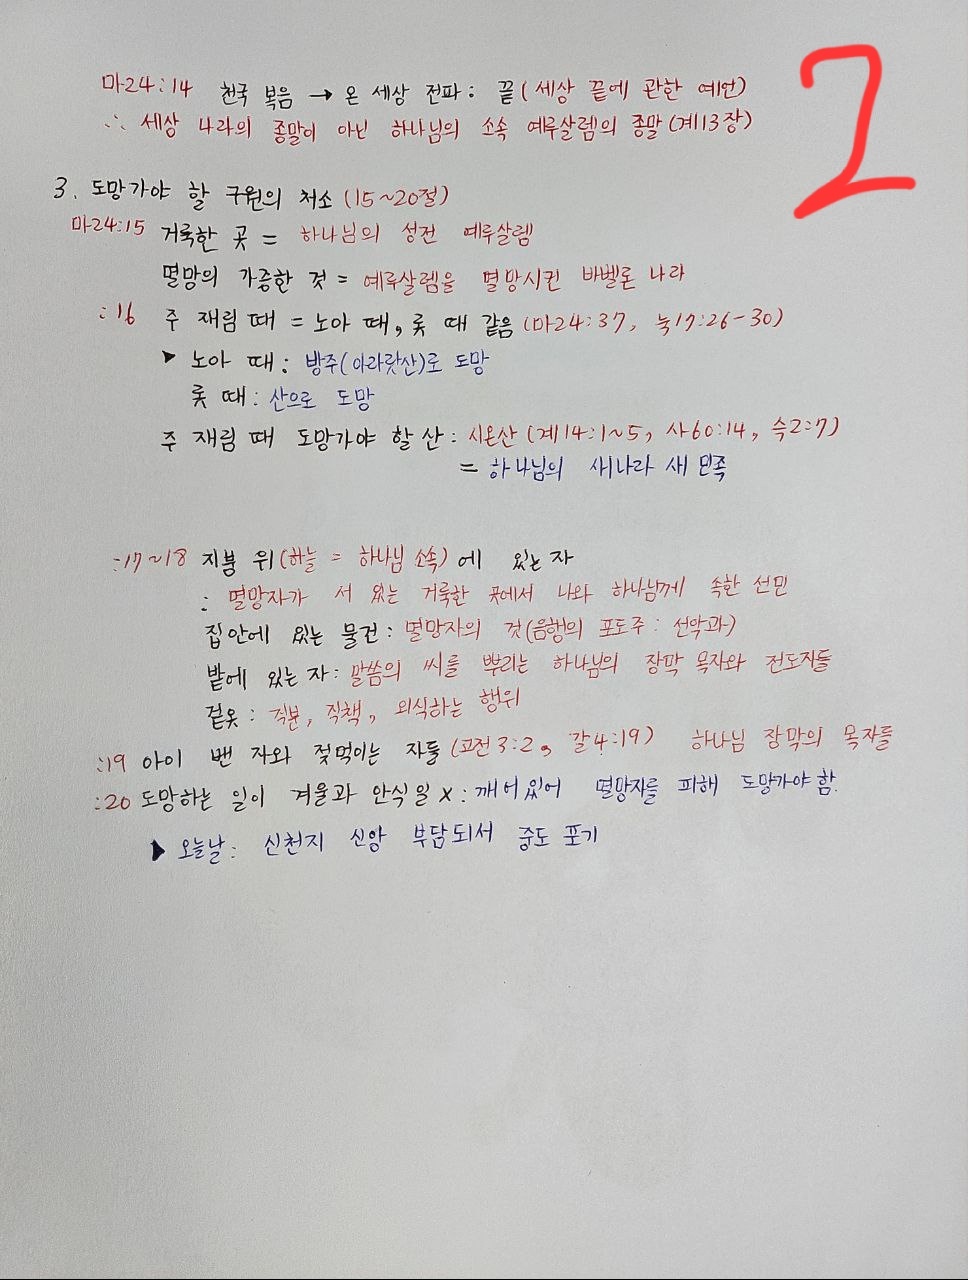 2
마24:14 천국 복음 → 온 세상 전파: 끝(세상 끝에 관한 예언)
∴ 세상 나라의 종말이 아닌 하나님의 소속 예루살렘의 종말(계13장)
3. 도망가야 할 구원의 처소 (15~20절)
마24:15 거룩한 곳 = 하나님의 성전 예루살렘
멸망의 가증한 것 = 예루살렘을 멸망시킨 바벨론 나라
:16 주 재림 때 = 노아 때, 롯 때 같음 (마24:37, 눅17:26-30)
▶ 노아 때: 방주(아라랏산)로 도망
롯 때: 산으로 도망
주 재림 때 도망가야 할 산: 시온산 (계14:1~5, 사60:14, 슥2:7)
= 하나님의 새나라 새 민족
:17~18 지붕 위(하늘 = 하나님 소속)에 있는 자
: 멸망자가 서 있는 거룩한 곳에서 나와 하나님께 속한 선민
집안에 있는 물건: 멸망자의 것(음행의 포도주: 선악과)
밭에 있는 자: 말씀의 씨를 뿌리는 하나님의 장막 목자와 전도자들
겉옷: 직분, 직책, 외식하는 행위
:19 아이 밴 자와 젖먹이는 자들 (고전3:2, 갈4:19) 하나님 장막의 목자들
:20 도망하는 일이 겨울과 안식일 X: 깨어있어 멸망자를 피해 도망가야 함.
▶ 오늘날: 신천지 신앙 부담되서 중도 포기